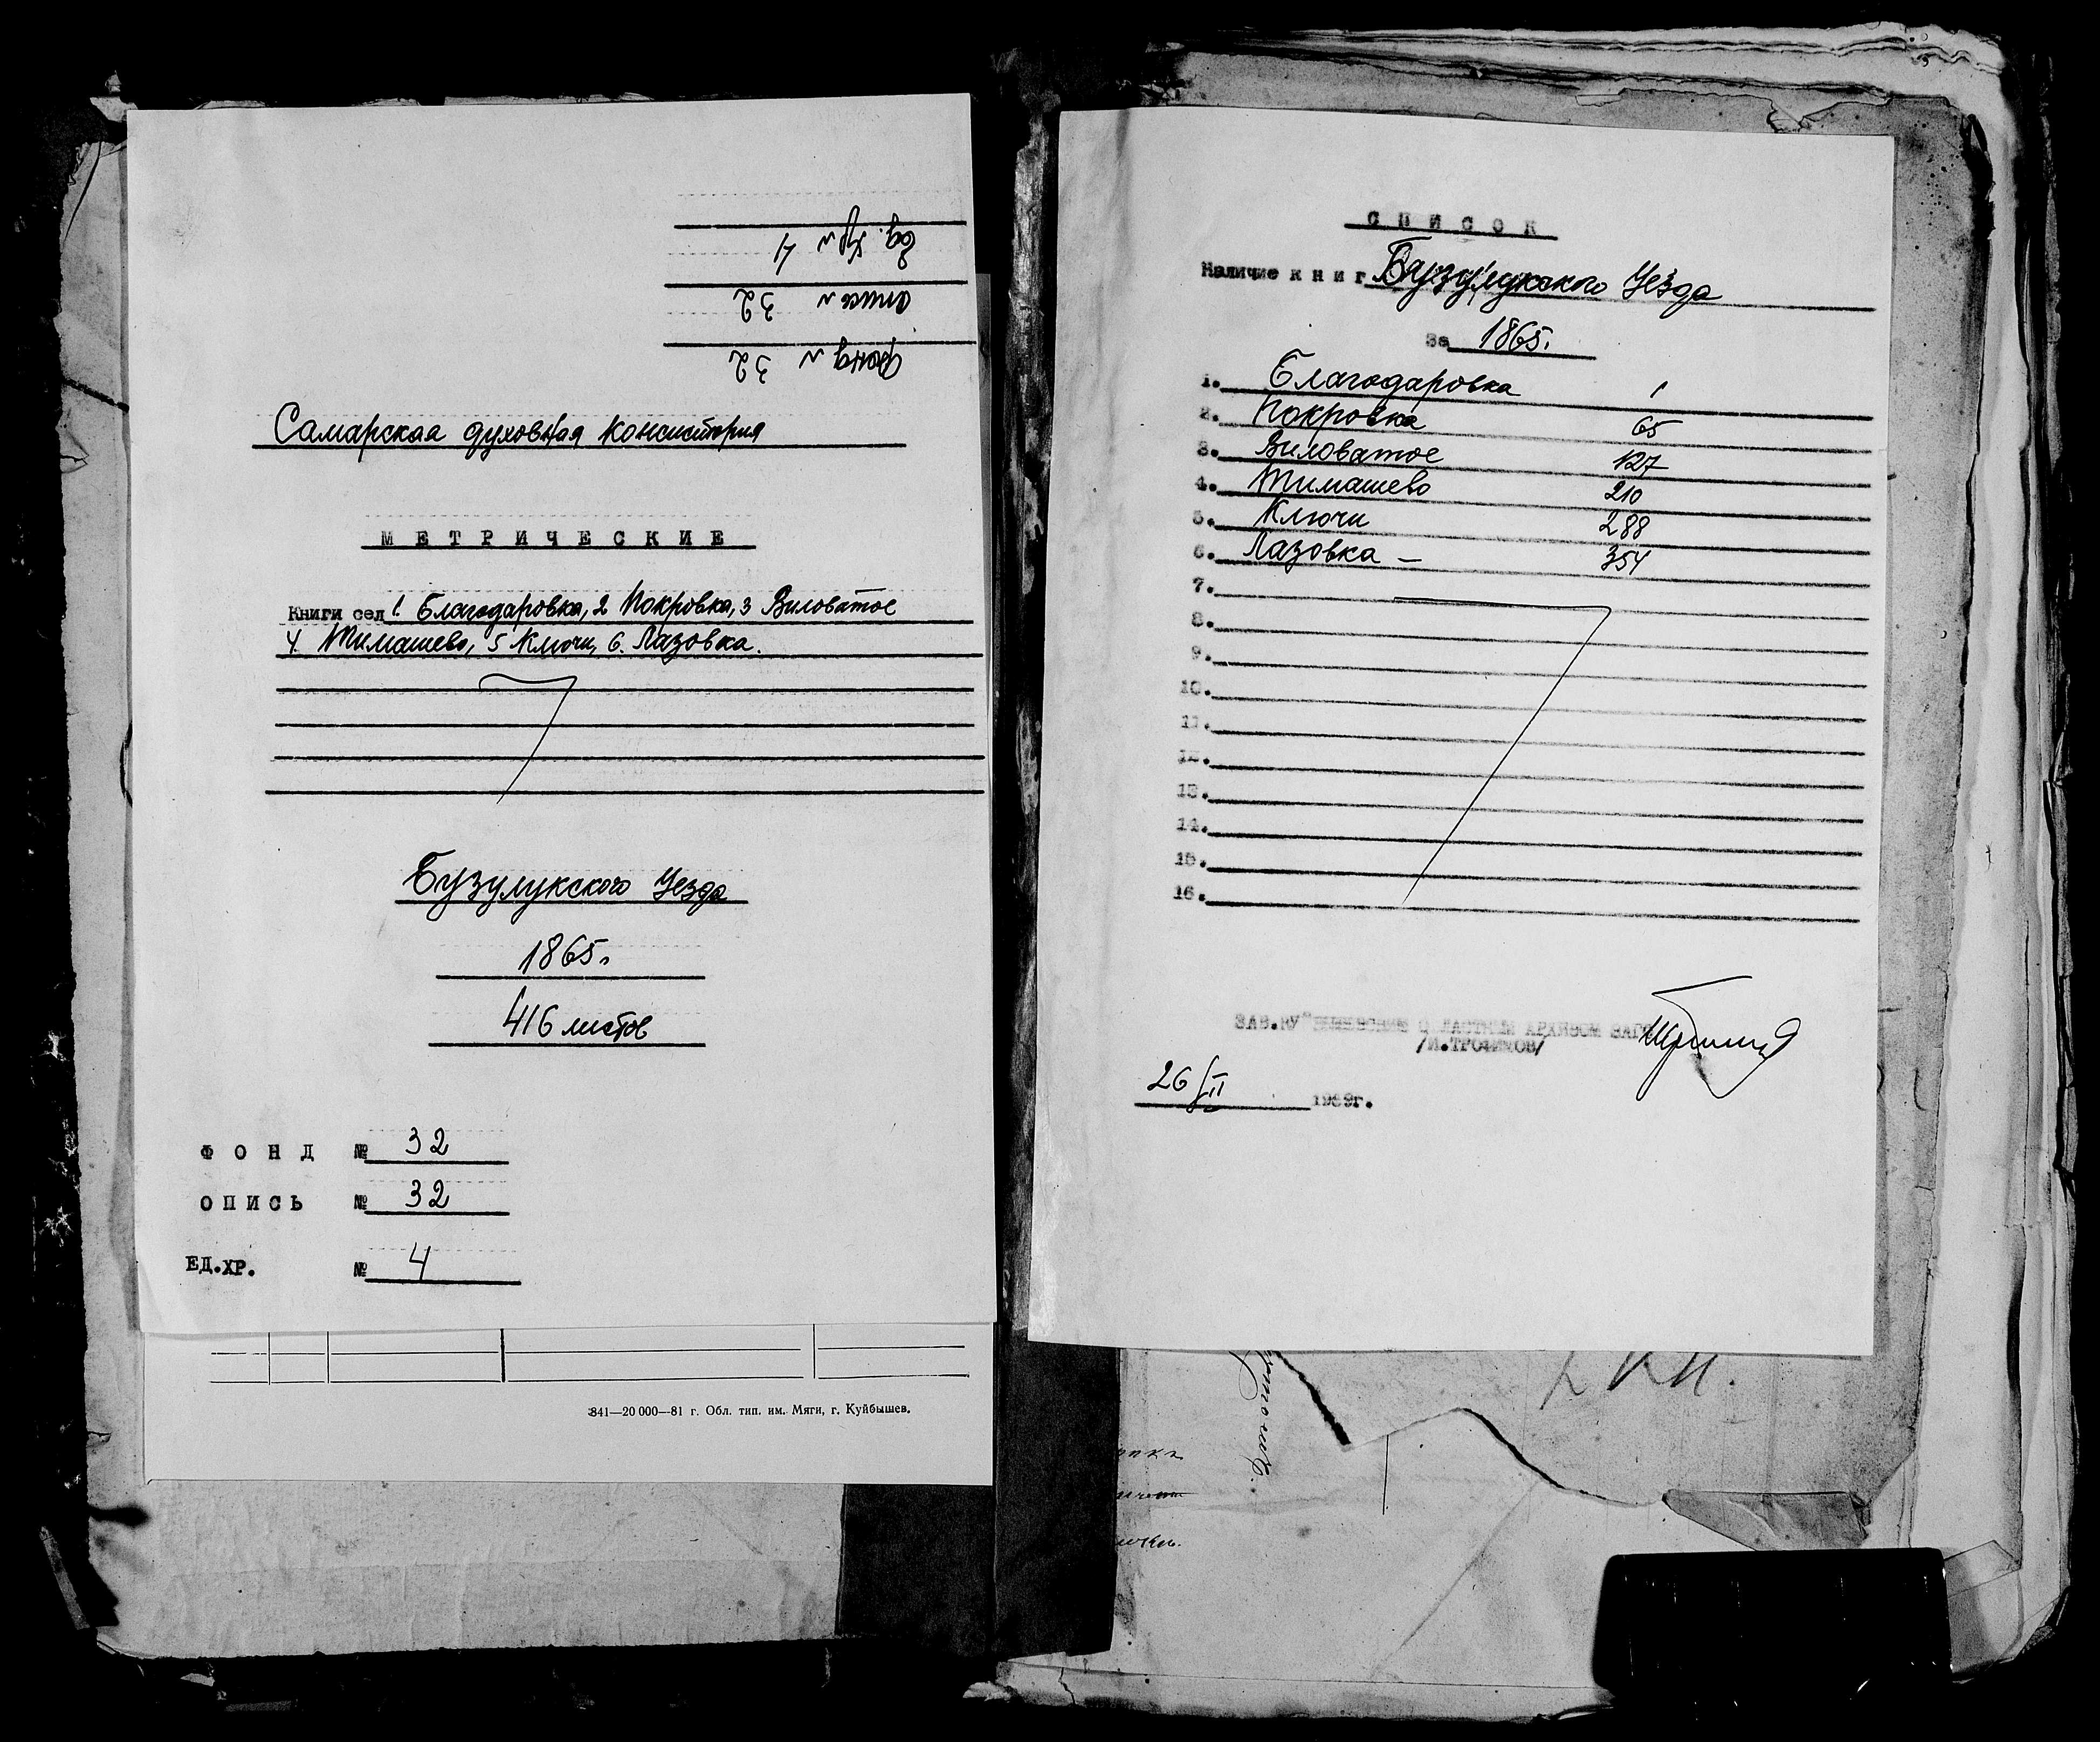 Ед. хр. № 4
опись № 32
Фонд № 32
Самарская духовная консистория
МЕТРИЧЕСКИЕ
Книги сел 1. Благодаровка, 2 Покровка, 3 Виловатое
4. Тимашево, 5 Ключи, 6. Лазовка.
Бузулукского Уезда
1865г
416 листов
ФОНД № 32
ОПИСЬ № 32
ЕД.ХР. № 4
841—20 000—81 г. Обл. тип. им. Мяги, г. Куйбышев.
СПИСОК
Наличие книг Бузулукского Уезда
За 1865г.
1. Благодаровка 1
2. Покровка 65
3. Виловатое 127
4. Тимашево 210
5. Ключи 288
6. Лазовка — 354
7.
8.
9.
10.
11.
12.
13.
14.
15.
16.
ЗАВ. АРХИВОМ
/И.ТРОФИМОВ/
26/II 19 г.